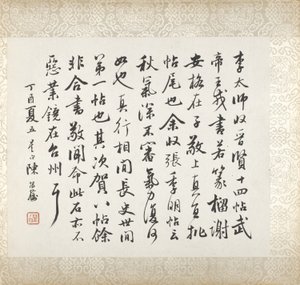 李太師收晉賢十四帖武
帝王戎書若篆籀謝
安格在子敬上真宜批
帖尾也余收張季明帖云
秋氣深不審氣力復何
如也真行相間長史世間
第一帖也其次賀八帖餘
非合書敬聞命此石亦不
惡業鏡在台州
丁酉夏五 陳